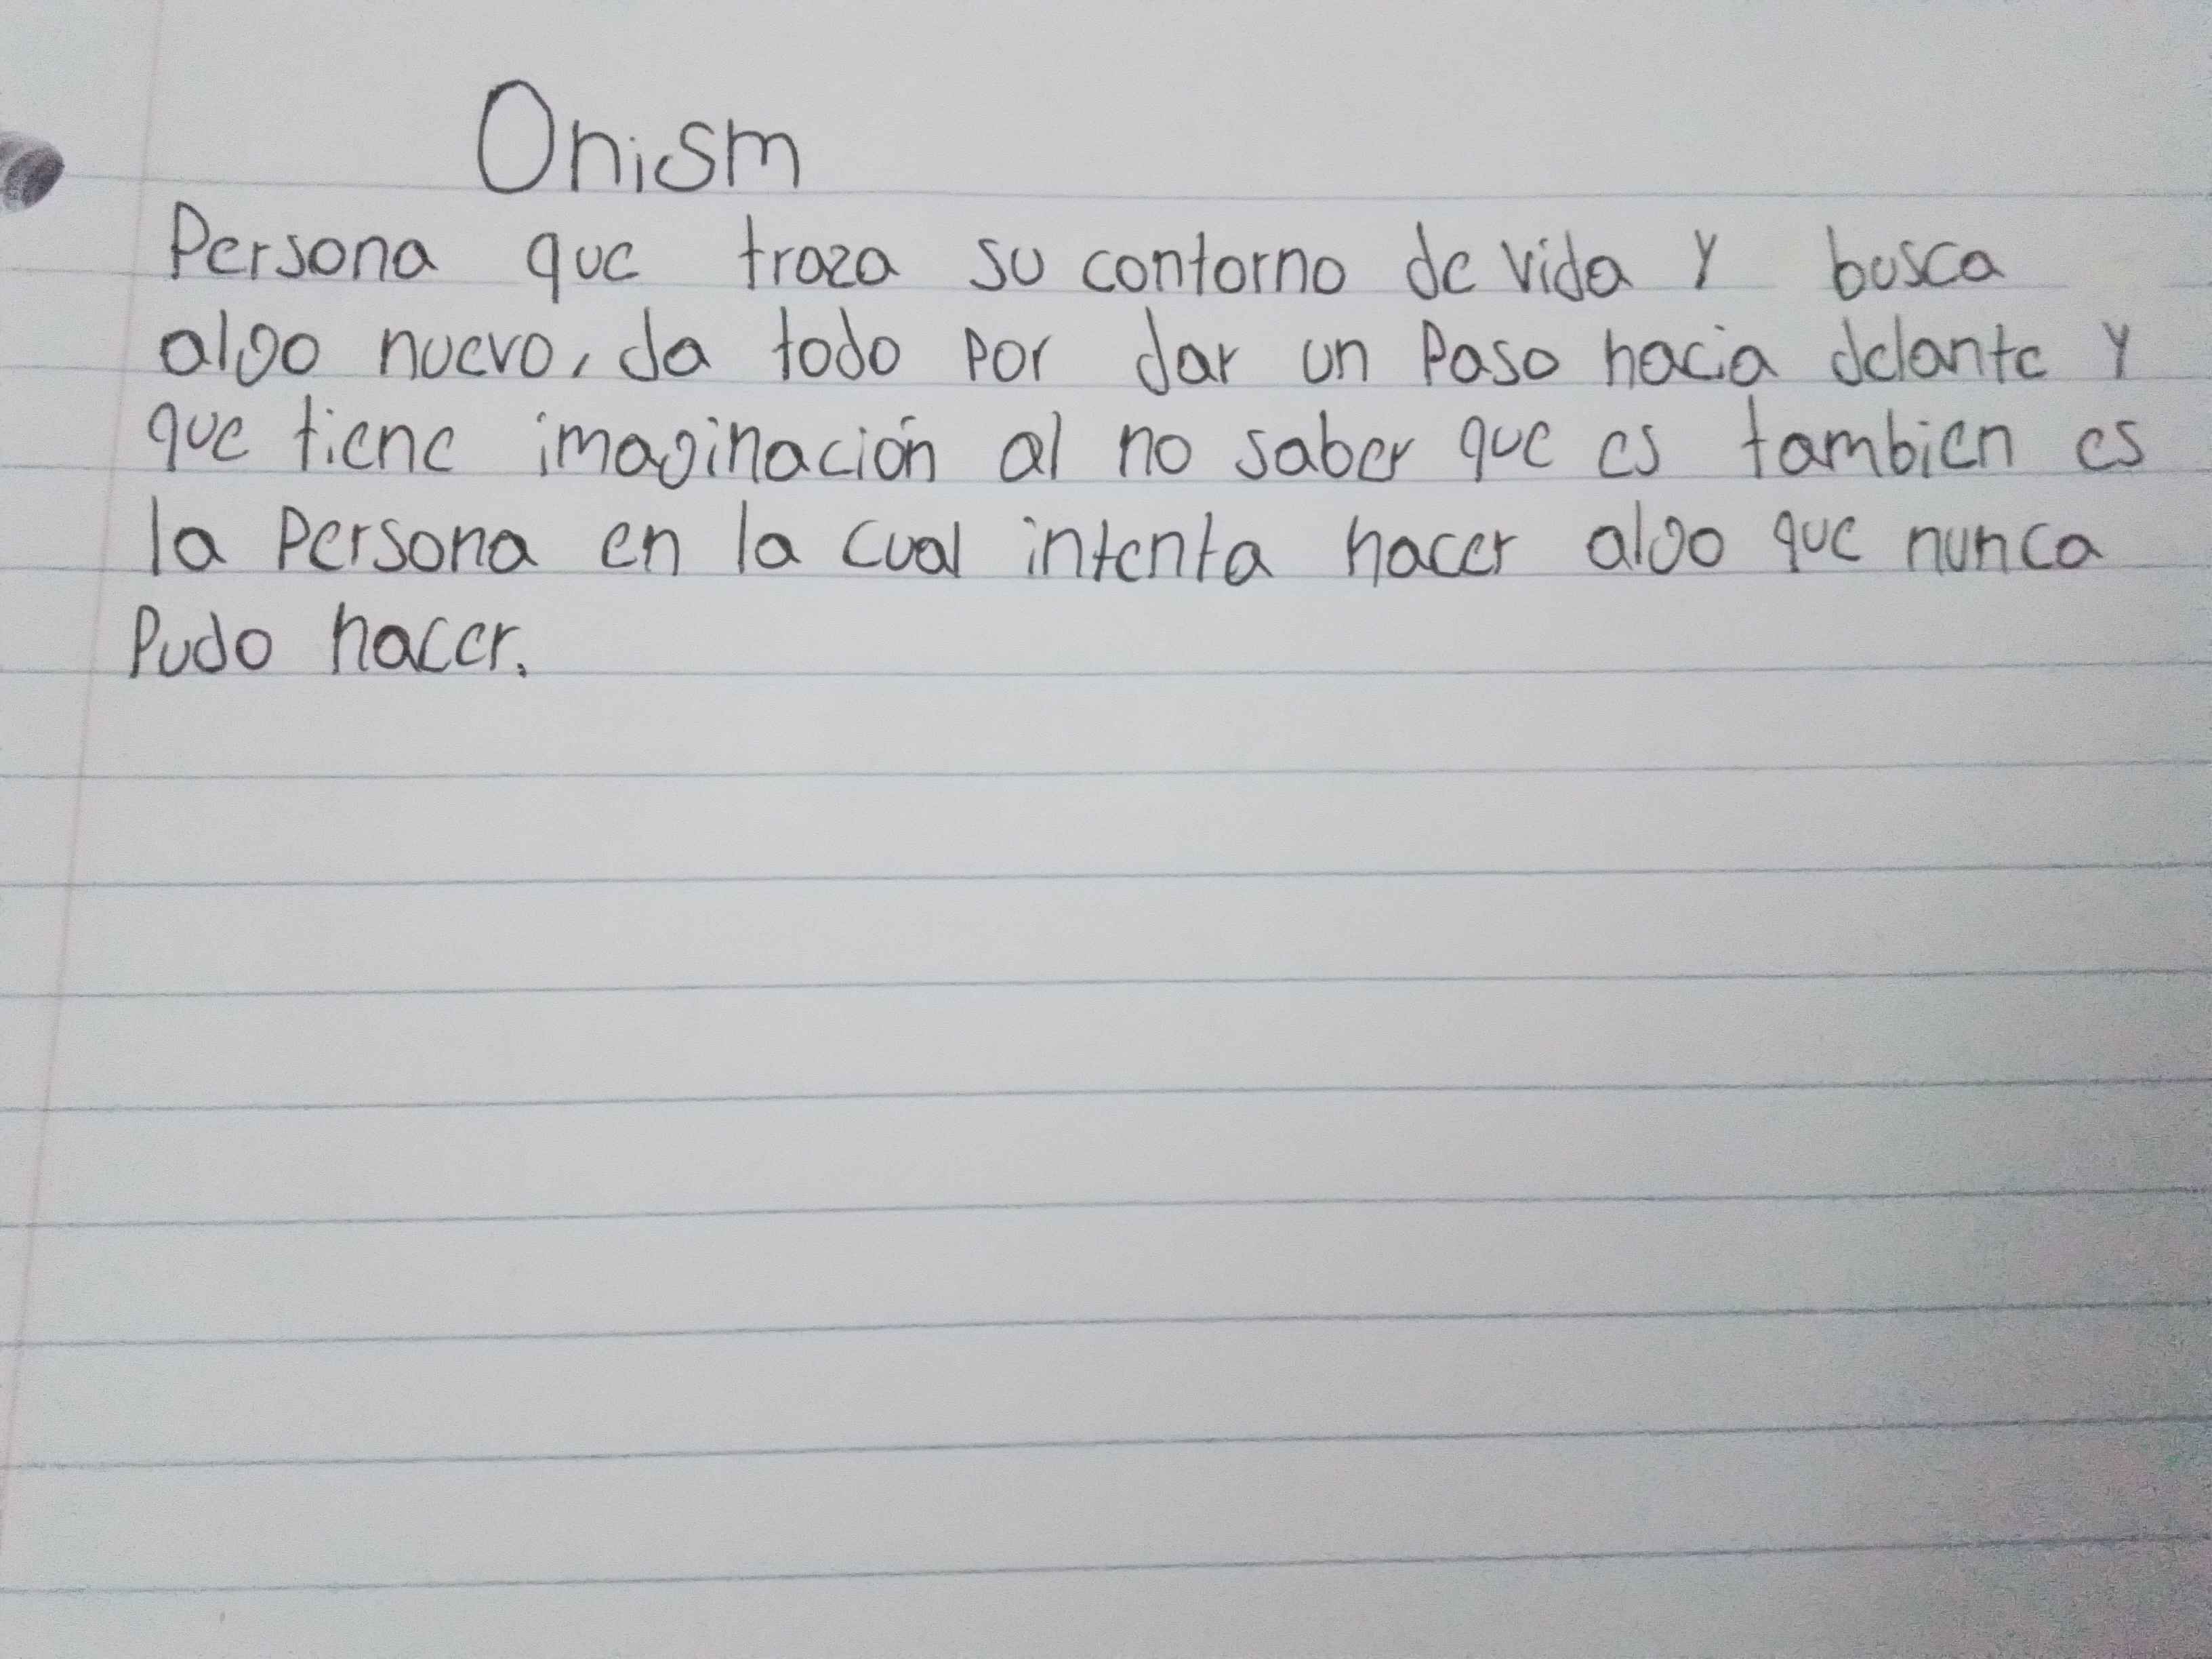 Onism
Persona que traza su contorno de vida y busca
algo nuevo, da todo por dar un paso hacia delante y
que tiene imaginación al no saber que es tambien es
la persona en la cual intenta hacer algo que nunca
Pudo hacer.